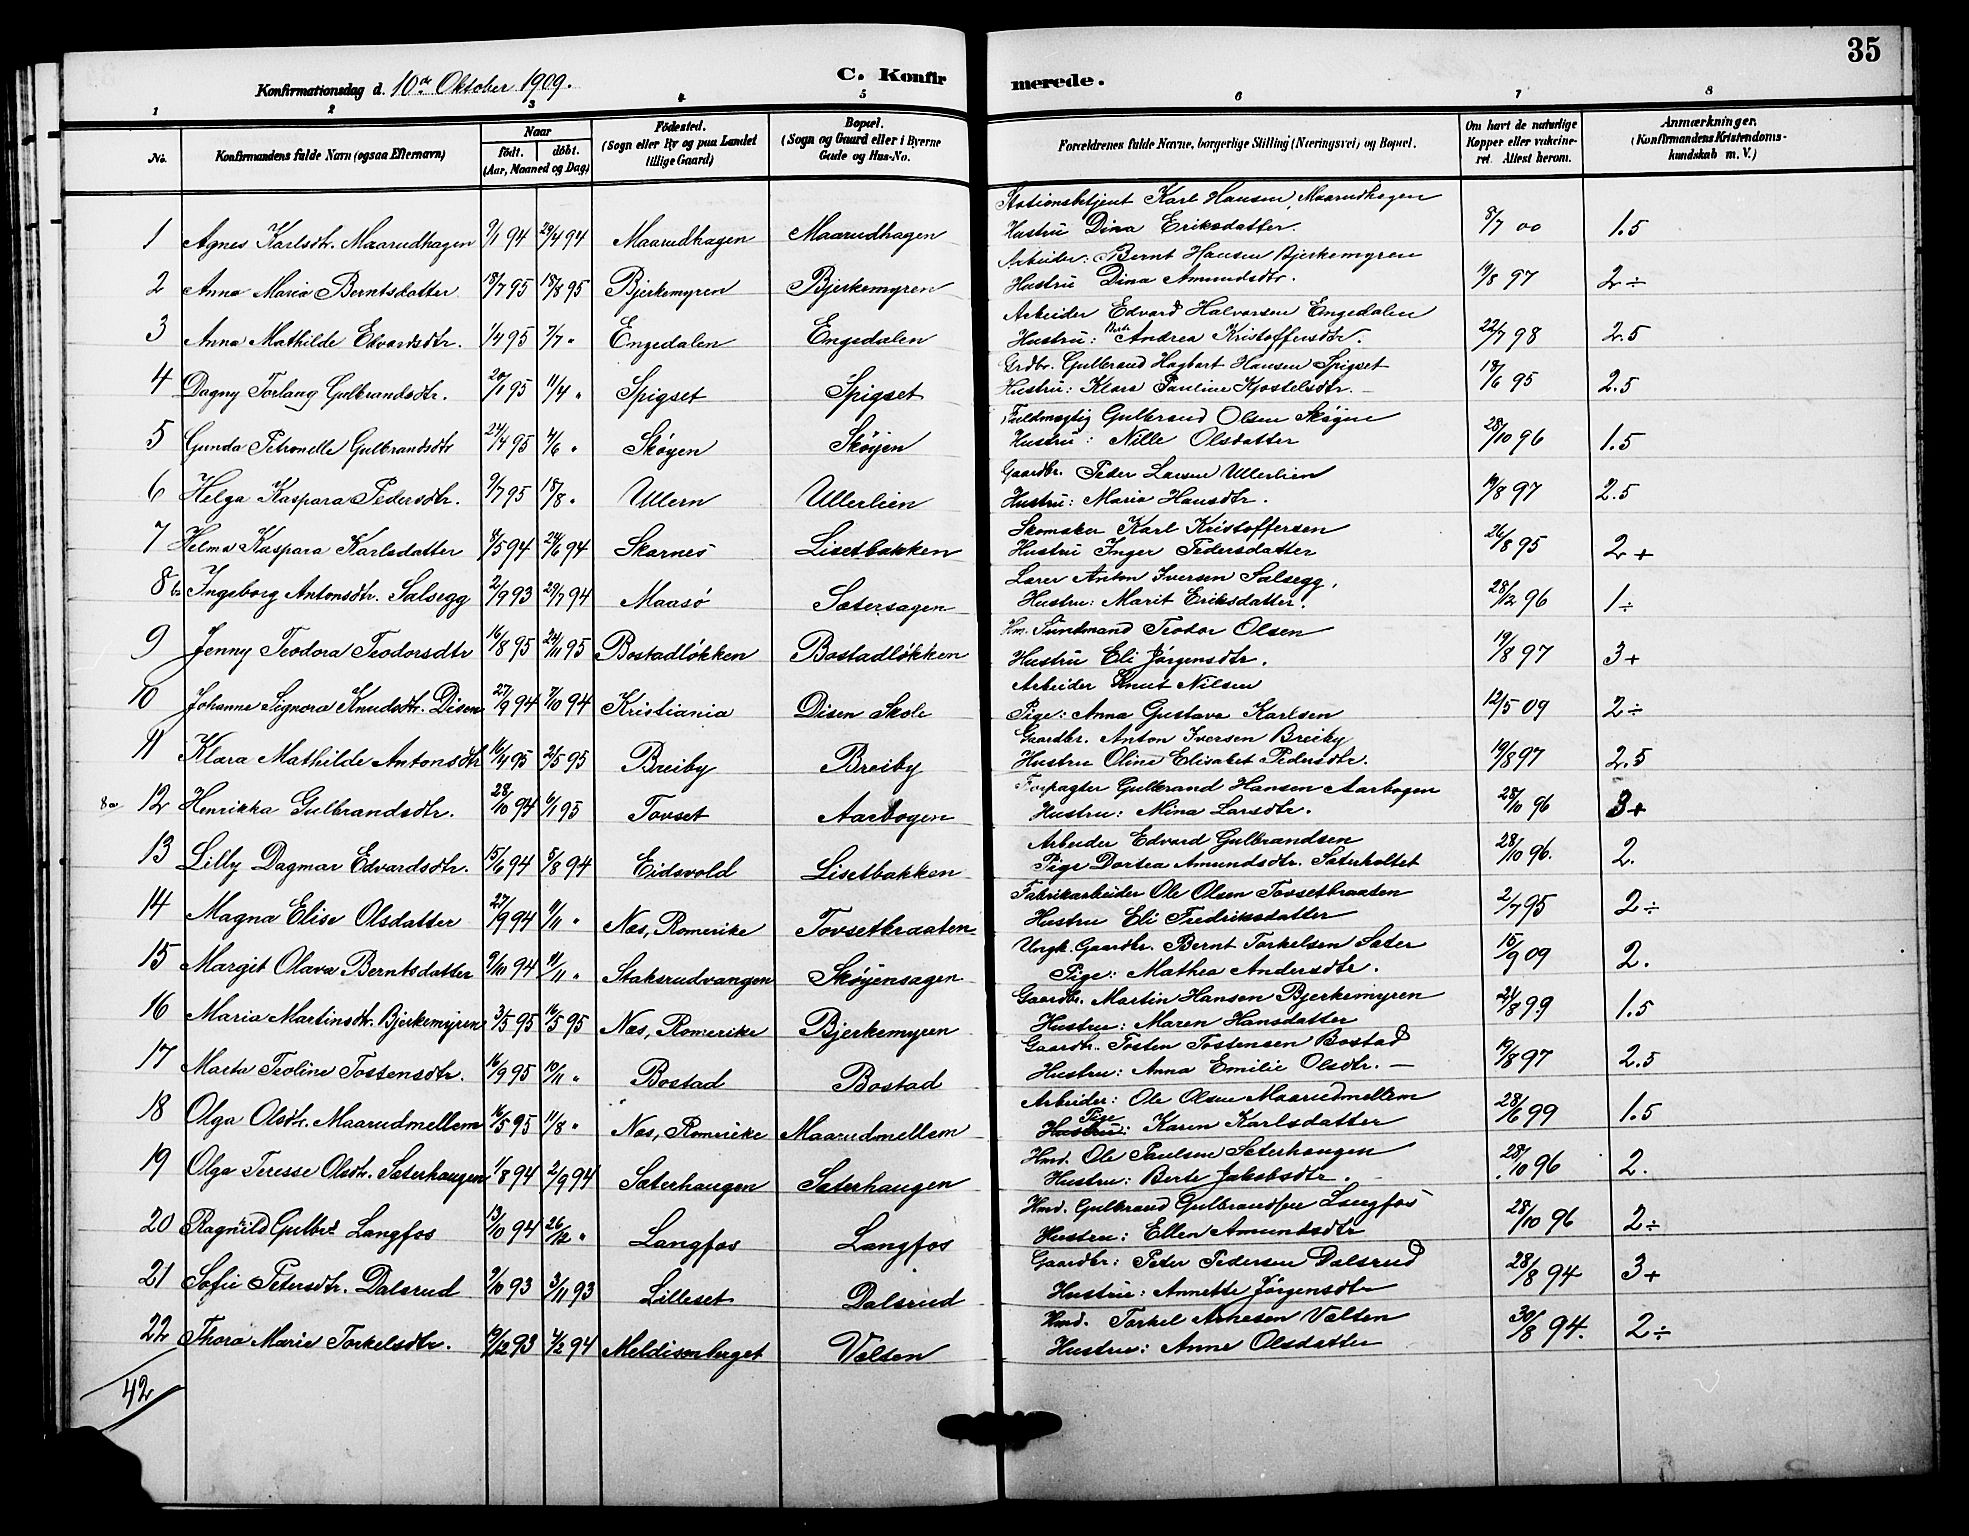 35
Konfirmationsdag d. 10de Oktober 1909. C. Konfirmerede.
1 2 3 4 5 6 7 8
No. Konfirmandens fulde Navn (ogsaa Efternavn) Naar født. døbt. (Aar, Maaned og Dag) Fødested. (Sogn eller By og paa Landet tillige Gaard) Bopæl. (Sogn og Gaard eller i Byerne Gade og Hus-No. Forældrenes fulde Navne, borgerlige Stilling (Næringsvei) og Bopæl. Om havt de naturlige Kopper eller vakcineret. Attest herom. Anmærkninger. (Konfirmandens Kristendomskundskab m. V.)
Stationsbetjent Karl Hansen, Maarudhagen
1 Agnes Karlsdtr. Maarudhagen 9/1 94 29/4 94 Maarudhagen Maarudhagen Hustru Dina Eriksdatter. 8/7 00 1.5
Arbeider: Bernt Hansen Bjerkemyren
2 Anna Maria Berntsdatter 18/7 95 18/8 95 Bjerkemyren Bjerkemyren Hustru Dina Amundsdtr. 19/8 97 2÷
Arbeider Edvard Halvorsen Engedalen
3 Anna Mathilde Edvardsdtr. 1/4 95 7/7 " Engedalen Engedalen Hustru: Andrea Kristoffersdtr. 22/7 98 2.5
Grdbr. Gulbrand Hagbart Hansen Spigset
4 Dagny Torlaug Gulbrandsdtr. 20/1 95 11/4 " Spigset Spigset Hustru: Klara Pauline Kjostelsdtr. 18/6 95 2.5
Fuldmægtig Gulbrand Olsen Skøyen
5 Gunda Petronelle Gulbrandsdtr 24/4 95 4/6 " Skøyen Skøyen Hustru: Nille Olsdatter 28/10 96 1.5
Gaardbr. Peder Larsen Ullerlien
6 Helga Kaspara Pedersdtr. 9/7 95 18/8 " Ullern Ullerlien Hustru: Maria Hansdtr. 19/8 97 2.5
Skomaker Karl Kristoffersen
7 Helma Kaspara Karlsdatter 8/5 94 24/6 94 Skarnes Lisetbakken Hustru Inger Pedersdatter 26/8 95 2+
Lærer Anton Iversen Salsegg,
8b Ingeborg Antonsdtr. Salsegg 2/9 93 29/7 94 Maasø Sætersagen Hustru: Marit Eriksdatter. 28/12 96 1÷
Hm. Tundmand Teodor Olsen
9 Jenny Teodora Teodorsdtr 16/8 95 24/11 95 Bostadløkken Bostadløkken Hustru Eli Jørgensdtr. 19/8 97 3+
Arbeider Knut Nilsen
10 Johanne Signora Knudsdtr. Disen 27/9 94 7/10 94 Kristiania Disen Skole Pige: Anna Gustava Karlsen 12/5 09 2÷
Gaardbr. Anton Iversen Breiby
11 Klara Mathilde Antonsdtr 16/4 95 21/5 95 Breiby Breiby Hustru Oline Elisabet Pedersdtr. 19/8 97 2.5
Forpagter Gulbrand Hansen Aarbogen
8a 12 Henrikka Gulbrandsdtr. 28/10 94 6/1 95 Tovset Aarbogen Hustru: Mina Larsdtr. 28/10 96 3+
Arbeider Edvard Gulbrandsen
13 Lilly Dagmar Edvardsdtr. 15/6 94 5/8 94 Eidsvold Lisetbakken Pige Dortea Amundsdtr. Sæterholtet 28/10 96. 2.
Fabrikarbeider Ole Olsen Tovsetbraaden
14 Magna Elise Olsdatter 27/9 94 11/11 " Nes, Romerike Tovsetbraaten Hustru Eli Fredriksdatter 2/7 95 2÷
Ungk. Gaardbr. Bernt Torkelsen Sæter
15 Margit Olava Berntsdatter 9/10 94 11/11 " Staksrudvangen Skøyensagen Pige: Mathea Andersdtr. 15/9 09 2.
Gaardbr. Martin Hansen Bjerkemyren
16 Maria Martinsdtr. Bjerkemyren 3/5 95 16/5 95 Nes, Romerike Bjerkemyren Hustru: Maren Hansdatter 24/8 99 1.5
Gaardbr. Tosten Tostensen Bostad
17 Marta Teoline Tostensdtr. 16/9 95 10/11 " Bostad Bostad Hustru: Anna Emilie Olsdtr. 19/8 97 2.5
Arbeider: Ole Olsen Maarudmellem
18 Olga Olsdtr. Maarudmellem 16/5 95 11/8 " Nes, Romerike Maarudmellem Hustru: Pige Karen Karlsdatter 28/6 99 1.5
Hmd. Ole Paulsen Sæterhaugen
19 Olga Teresse Olsdtr. Sæterhaugen 1/8 94 2/9 94 Sæterhaugen Sæterhaugen Hustru: Berte Jakobsdtr. 28/10 96 2.
Hmd. Gulbrand Gulbrandsen Langfos
20 Ragnild Gulbr. Langfos 13/10 94 26/12 " Langfos Langfos Hustru: Ellen Amundsdtr 28/10 96 2÷
Gaardbr: Peter Pedersen Dalsrud
21 Sofie Petersdtr. Dalsrud 9/10 93 3/11 93 Lilleset Dalsrud Hustru: Annette Jørgensdtr 28/8 94 3+
Hmd. Torkel Arnesen Valsen
22 Thora Marie Torkelsdtr. 19/12 93 4/2 94 Meldisenberget Velsen Hustru: Anne Olsdatter 30/8 94. 2÷
42